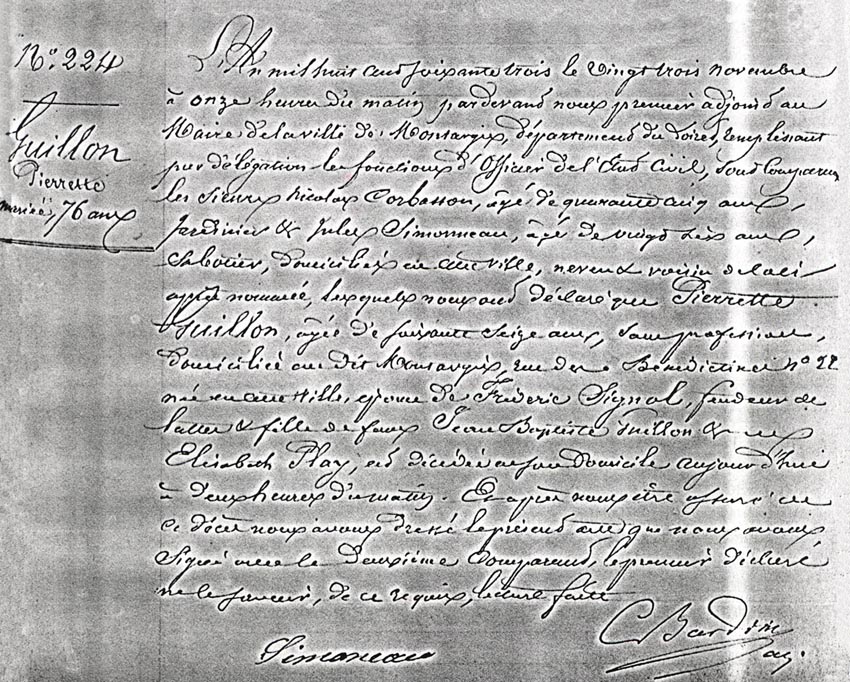 N° 224
Guillon
Pierrette
mariée, 76 ans
L'An mil huit cent soixante trois le vingt trois novembre
à onze heures du matin pardevant nous premier adjoint au
Maire de la ville de Montargis, département du Loiret, remplissant
par délégation les fonctions d'Officier de l'État Civil, sont comparus
les sieurs Nicolas Corbasson, âgé de quarante cinq ans,
jardinier & Jules Simonneau, âgé de vingt six ans,
sabotier, domiciliés en cette ville, neveu & voisin de la ci
après nommée, lesquels nous ont déclaré que Pierrette
Guillon, âgée de soixante seize ans, sans profession,
domiciliée au dit Montargis, rue des Bénédictines n° 22
née en cette ville, épouse de Fréderic Signol, fendeur de
lattes & fille de feux Jean Baptiste Guillon &
Elisabeth Play, est décédée en son domicile aujourd'hui
à deux heures du matin. Et après nous être assuré de
ce décès nous avons dressé le présent acte que nous avons
signé avec le deuxième comparant, le premier déclaré
ne le savoir, de ce requis, lecture faite
Simoneau
C Bardin